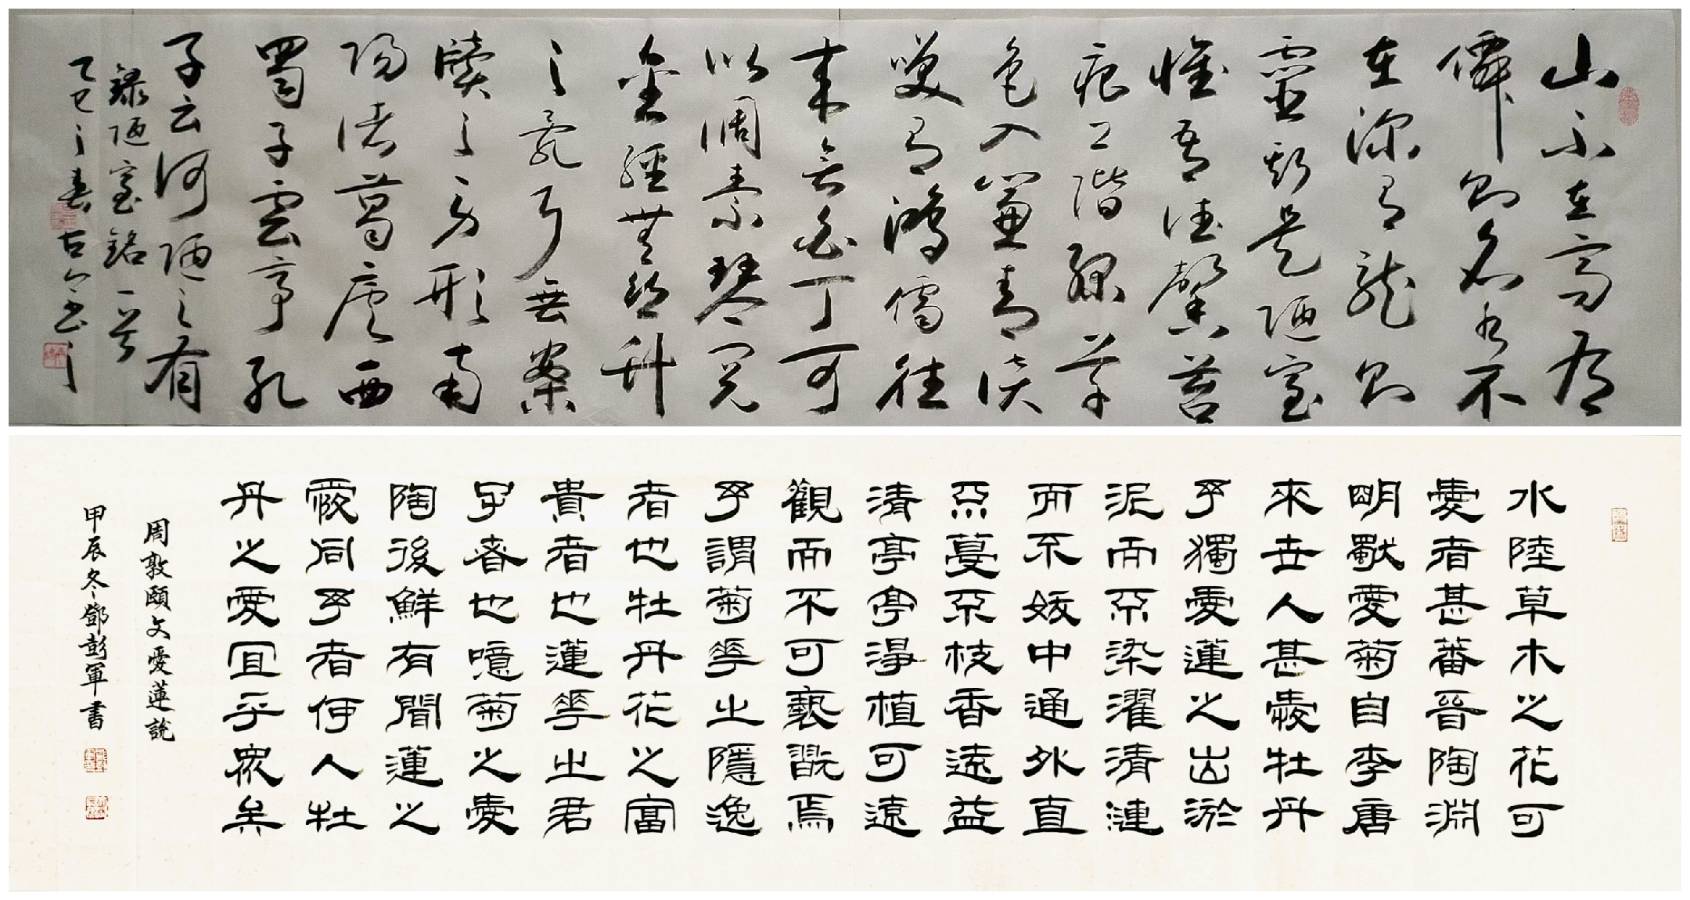 山不在高有
僊則名水不
在深有龍則
靈斯是陋室
惟吾德馨苔
痕上階綠草
色入簾青談
笑有鴻儒往
來無白丁可
以調素琴閱
金經無絲竹
之亂耳無案
牘之勞形南
陽諸葛廬西
蜀子雲亭孔
子云何陋之有
錄陋室銘一首
乙巳之春古書之
水陸草木之花可
愛者甚蕃晉陶淵
明獨愛菊自李唐
來世人甚愛牡丹
予獨愛蓮之出淤
泥而不染濯清漣
而不妖中通外直
不蔓不枝香遠益
清亭亭淨植可遠
觀而不可褻翫焉
予謂菊華之隱逸
者也牡丹花之富
貴者也蓮華之君
子者也噫菊之愛
陶後鮮有聞蓮之
愛同予者何人牡
丹之愛宜乎眾矣
周敦頤文愛蓮說
甲辰冬鄧彭軍書